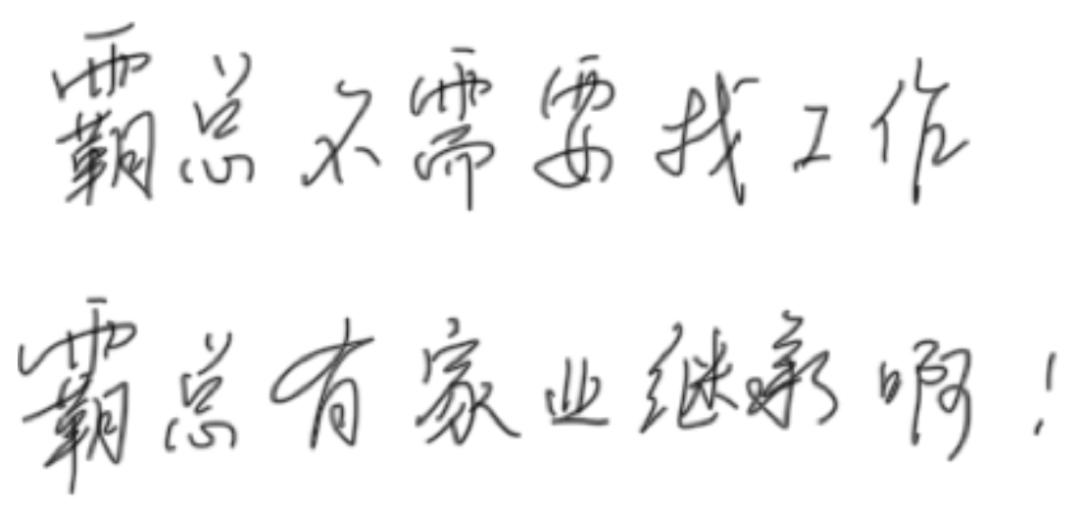 霸总不需要找工作
霸总有家业继承啊！